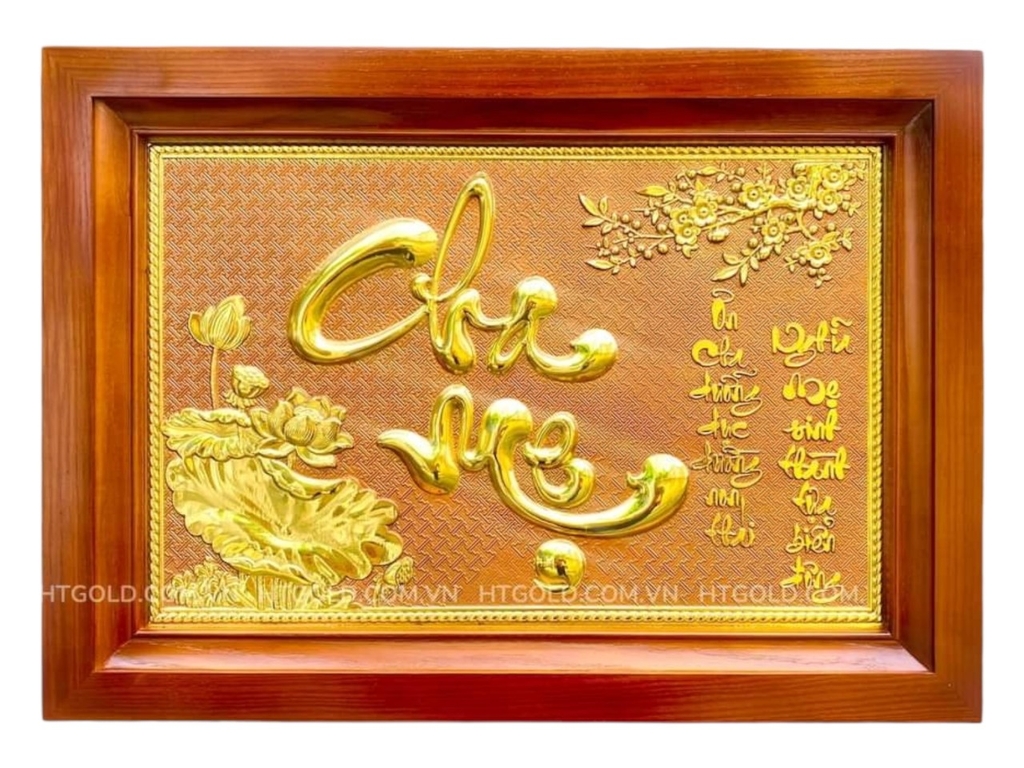 Cha
Mẹ
Ơn Cha dưỡng dục dường non thái
Nghĩa Mẹ sinh thành tựa biển đông
HTGOLD.COM.VN HTGOLD.COM.VN HTGOLD.COM.VN HTGOLD.COM